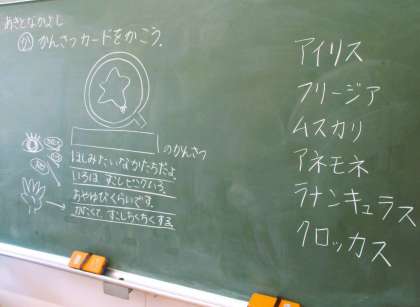 あきとなかよし
か かんさつカードをかこう。
のかんさつ
ほしみたいなかたちだよ
いろは すこしピンクいろ。
おやゆびくらいです。
かたくて、すこしちくちくする。
アイリス
フリージア
ムスカリ
アネモネ
ラナンキュラス
クロッカス